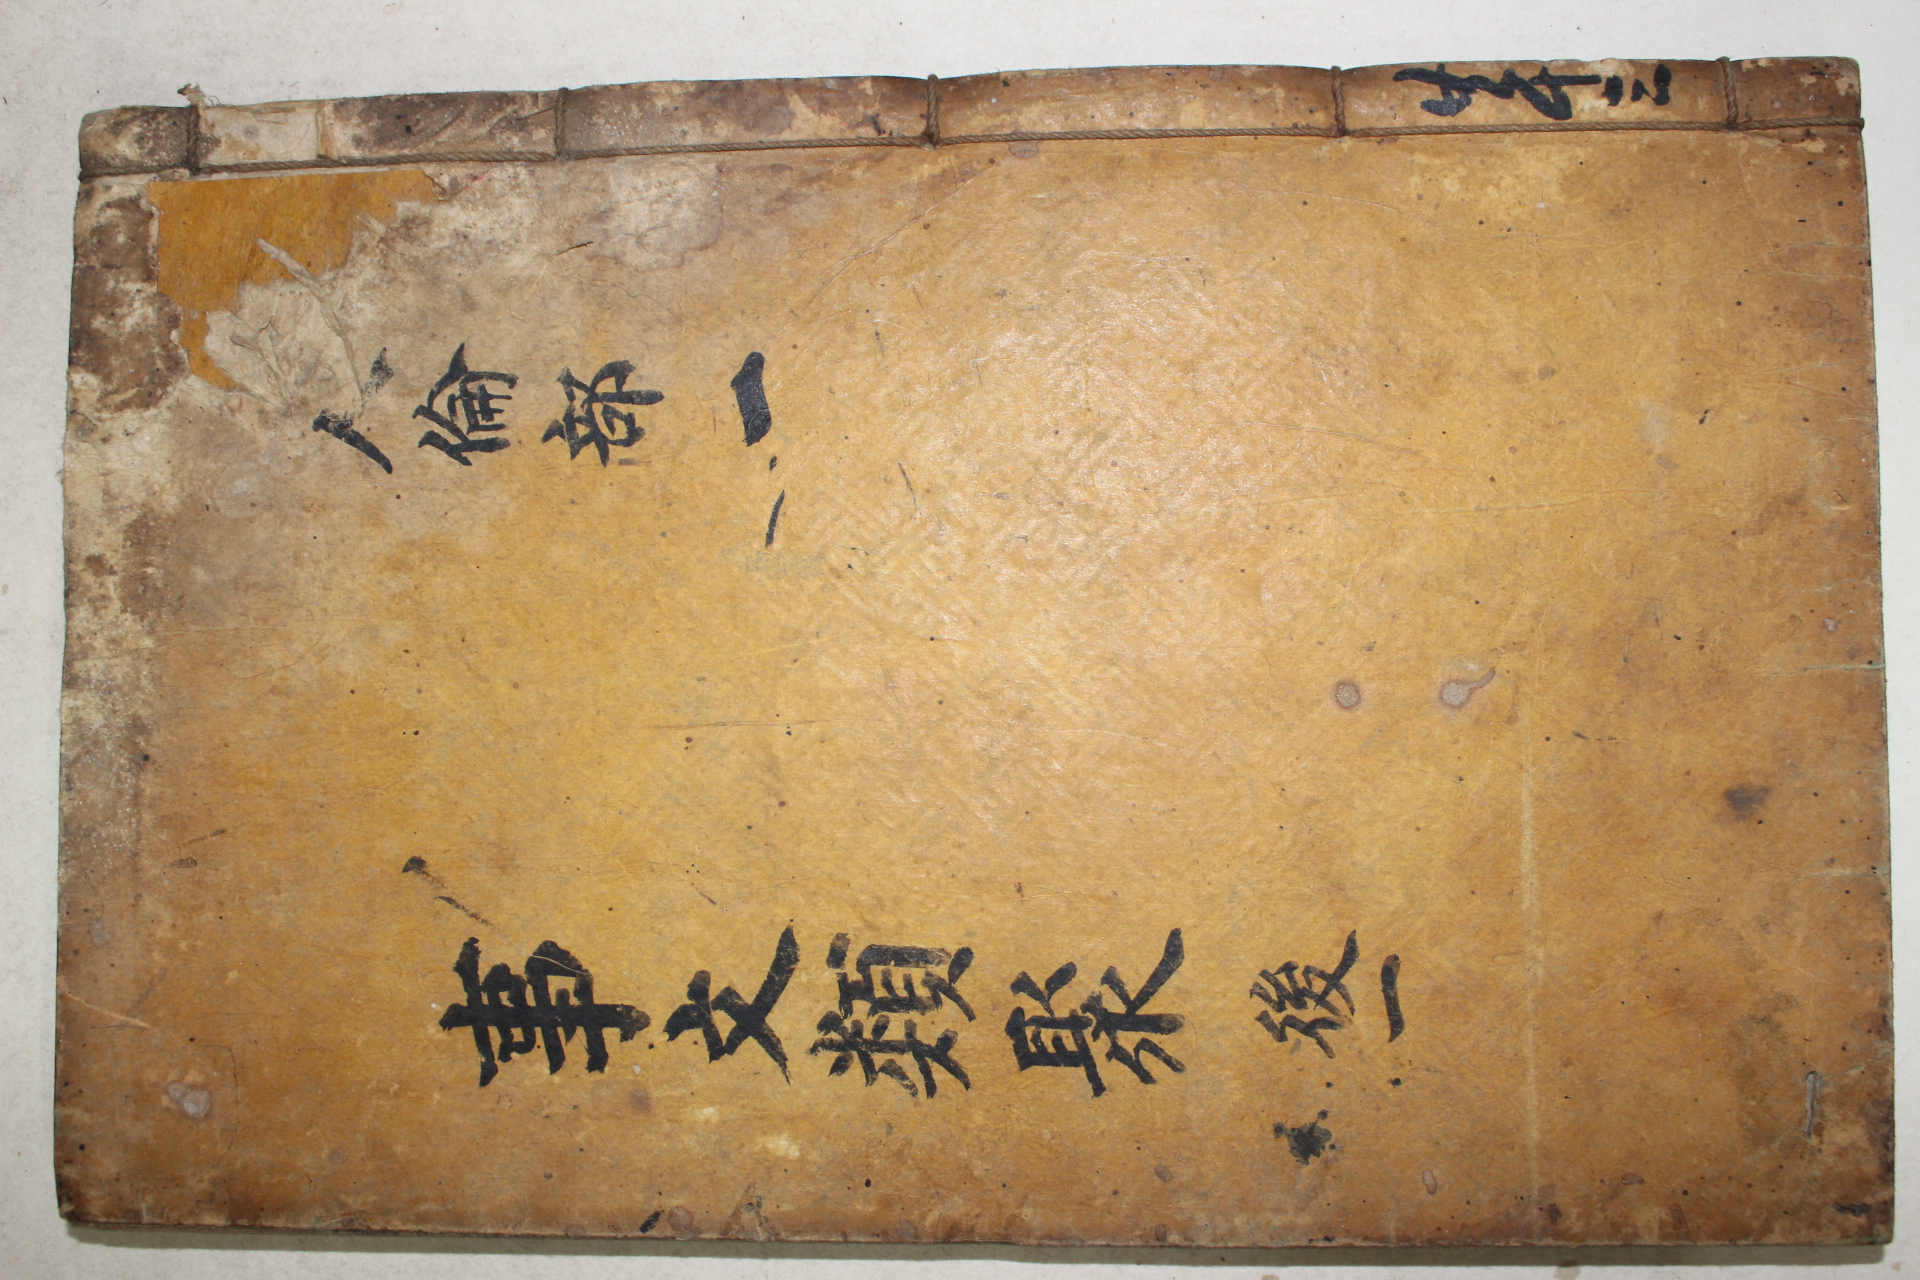 事文類聚 後一
人倫部 一
共卅二